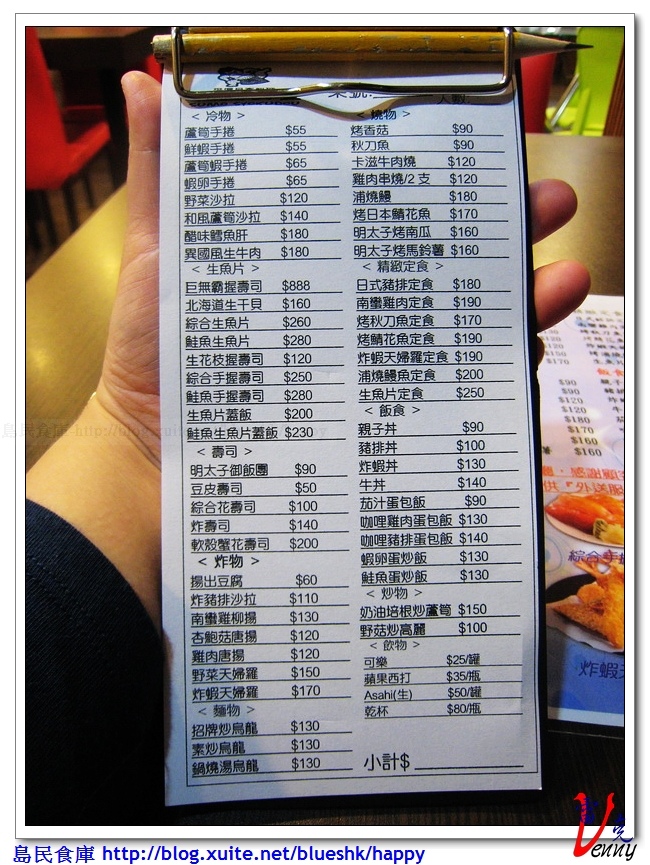 < 冷物 >
蘆筍手捲 $55
鮮蝦手捲 $55
蘆筍蝦手捲 $65
蝦卵手捲 $65
野菜沙拉 $120
和風蘆筍沙拉 $140
醋味鱈魚肝 $180
異國風生牛肉 $180
< 生魚片 >
巨無霸握壽司 $888
北海道生干貝 $160
綜合生魚片 $260
鮭魚生魚片 $280
生花枝握壽司 $120
綜合手握壽司 $250
鮭魚手握壽司 $280
生魚片蓋飯 $200
鮭魚生魚片蓋飯 $230
< 壽司 >
明太子御飯團 $90
豆皮壽司 $50
綜合花壽司 $100
炸壽司 $140
軟殼蟹花壽司 $200
< 炸物 >
揚出豆腐 $60
炸豬排沙拉 $110
南蠻雞柳揚 $130
杏鮑菇唐揚 $120
雞肉唐揚 $120
野菜天婦羅 $150
炸蝦天婦羅 $170
< 麵物 >
招牌炒烏龍 $130
素炒烏龍 $130
鍋燒湯烏龍 $130
< 燒物 >
烤香菇 $90
秋刀魚 $90
卡滋牛肉燒 $120
雞肉串燒/2 支 $120
浦燒鰻 $180
烤日本鯖花魚 $170
明太子烤南瓜 $160
明太子烤馬鈴薯 $160
< 精緻定食 >
日式豬排定食 $180
南蠻雞肉定食 $190
烤秋刀魚定食 $170
烤鯖花魚定食 $190
炸蝦天婦羅定食 $190
浦燒鰻魚定食 $200
生魚片定食 $250
< 飯食 >
親子丼 $90
豬排丼 $100
炸蝦丼 $130
牛丼 $140
茄汁蛋包飯 $90
咖哩雞肉蛋包飯 $130
咖哩豬排蛋包飯 $140
蝦卵蛋炒飯 $130
鮭魚蛋炒飯 $130
< 炒物 >
奶油培根炒蘆筍 $150
野菇炒高麗 $100
< 飲物 >
可樂 $25/罐
蘋果西打 $35/瓶
Asahi(生) $50/罐
乾杯 $80/瓶
小計$
$90
$90
$120
$120
$180
$170
$160
$160
綜合手
炸蝦天
Venny
島民食庫 http://blog.xuite.net/blueshk/happy